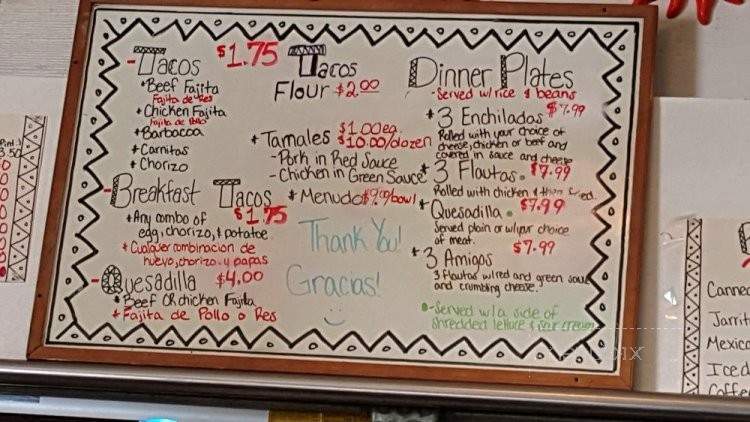 Tacos $1.75
*Beef Fajita
Fajita de Res
*Chicken Fajita
Fajita de Pollo
*Barbacoa
*Carnitas
*Chorizo
Breakfast Tacos
$1.75
*Any combo of
egg, chorizo, & potatoe
*Cualquier combinacion de
huevo, chorizo y papas
Quesadilla $4.00
*Beef OR chicken Fajita
*Fajita de Pollo o Res
Tacos
Flour $2.00
*Tamales $1.00 ea.
$10.00/dozen
-Pork in Red Sauce
-Chicken in Green Sauce
*Menudo /bowl
Thank You!
Gracias!
Dinner Plates
-Served w/ rice & beans
*3 Enchiladas $7.99
Rolled with your choice of
cheese, chicken or beef and
covered in sauce and cheese
*3 Flautas $7.99
Rolled with chicken & then fried.
*Quesadilla $7.99
Served plain or w/your choice
of meat.
*3 Amigos $7.99
3 flautas w/red and green sauce
and crumbling cheese.
-Served w/ a side of
shredded lettuce & sour cream
Canned
Jarrit
Mexico
Iced
Coffee